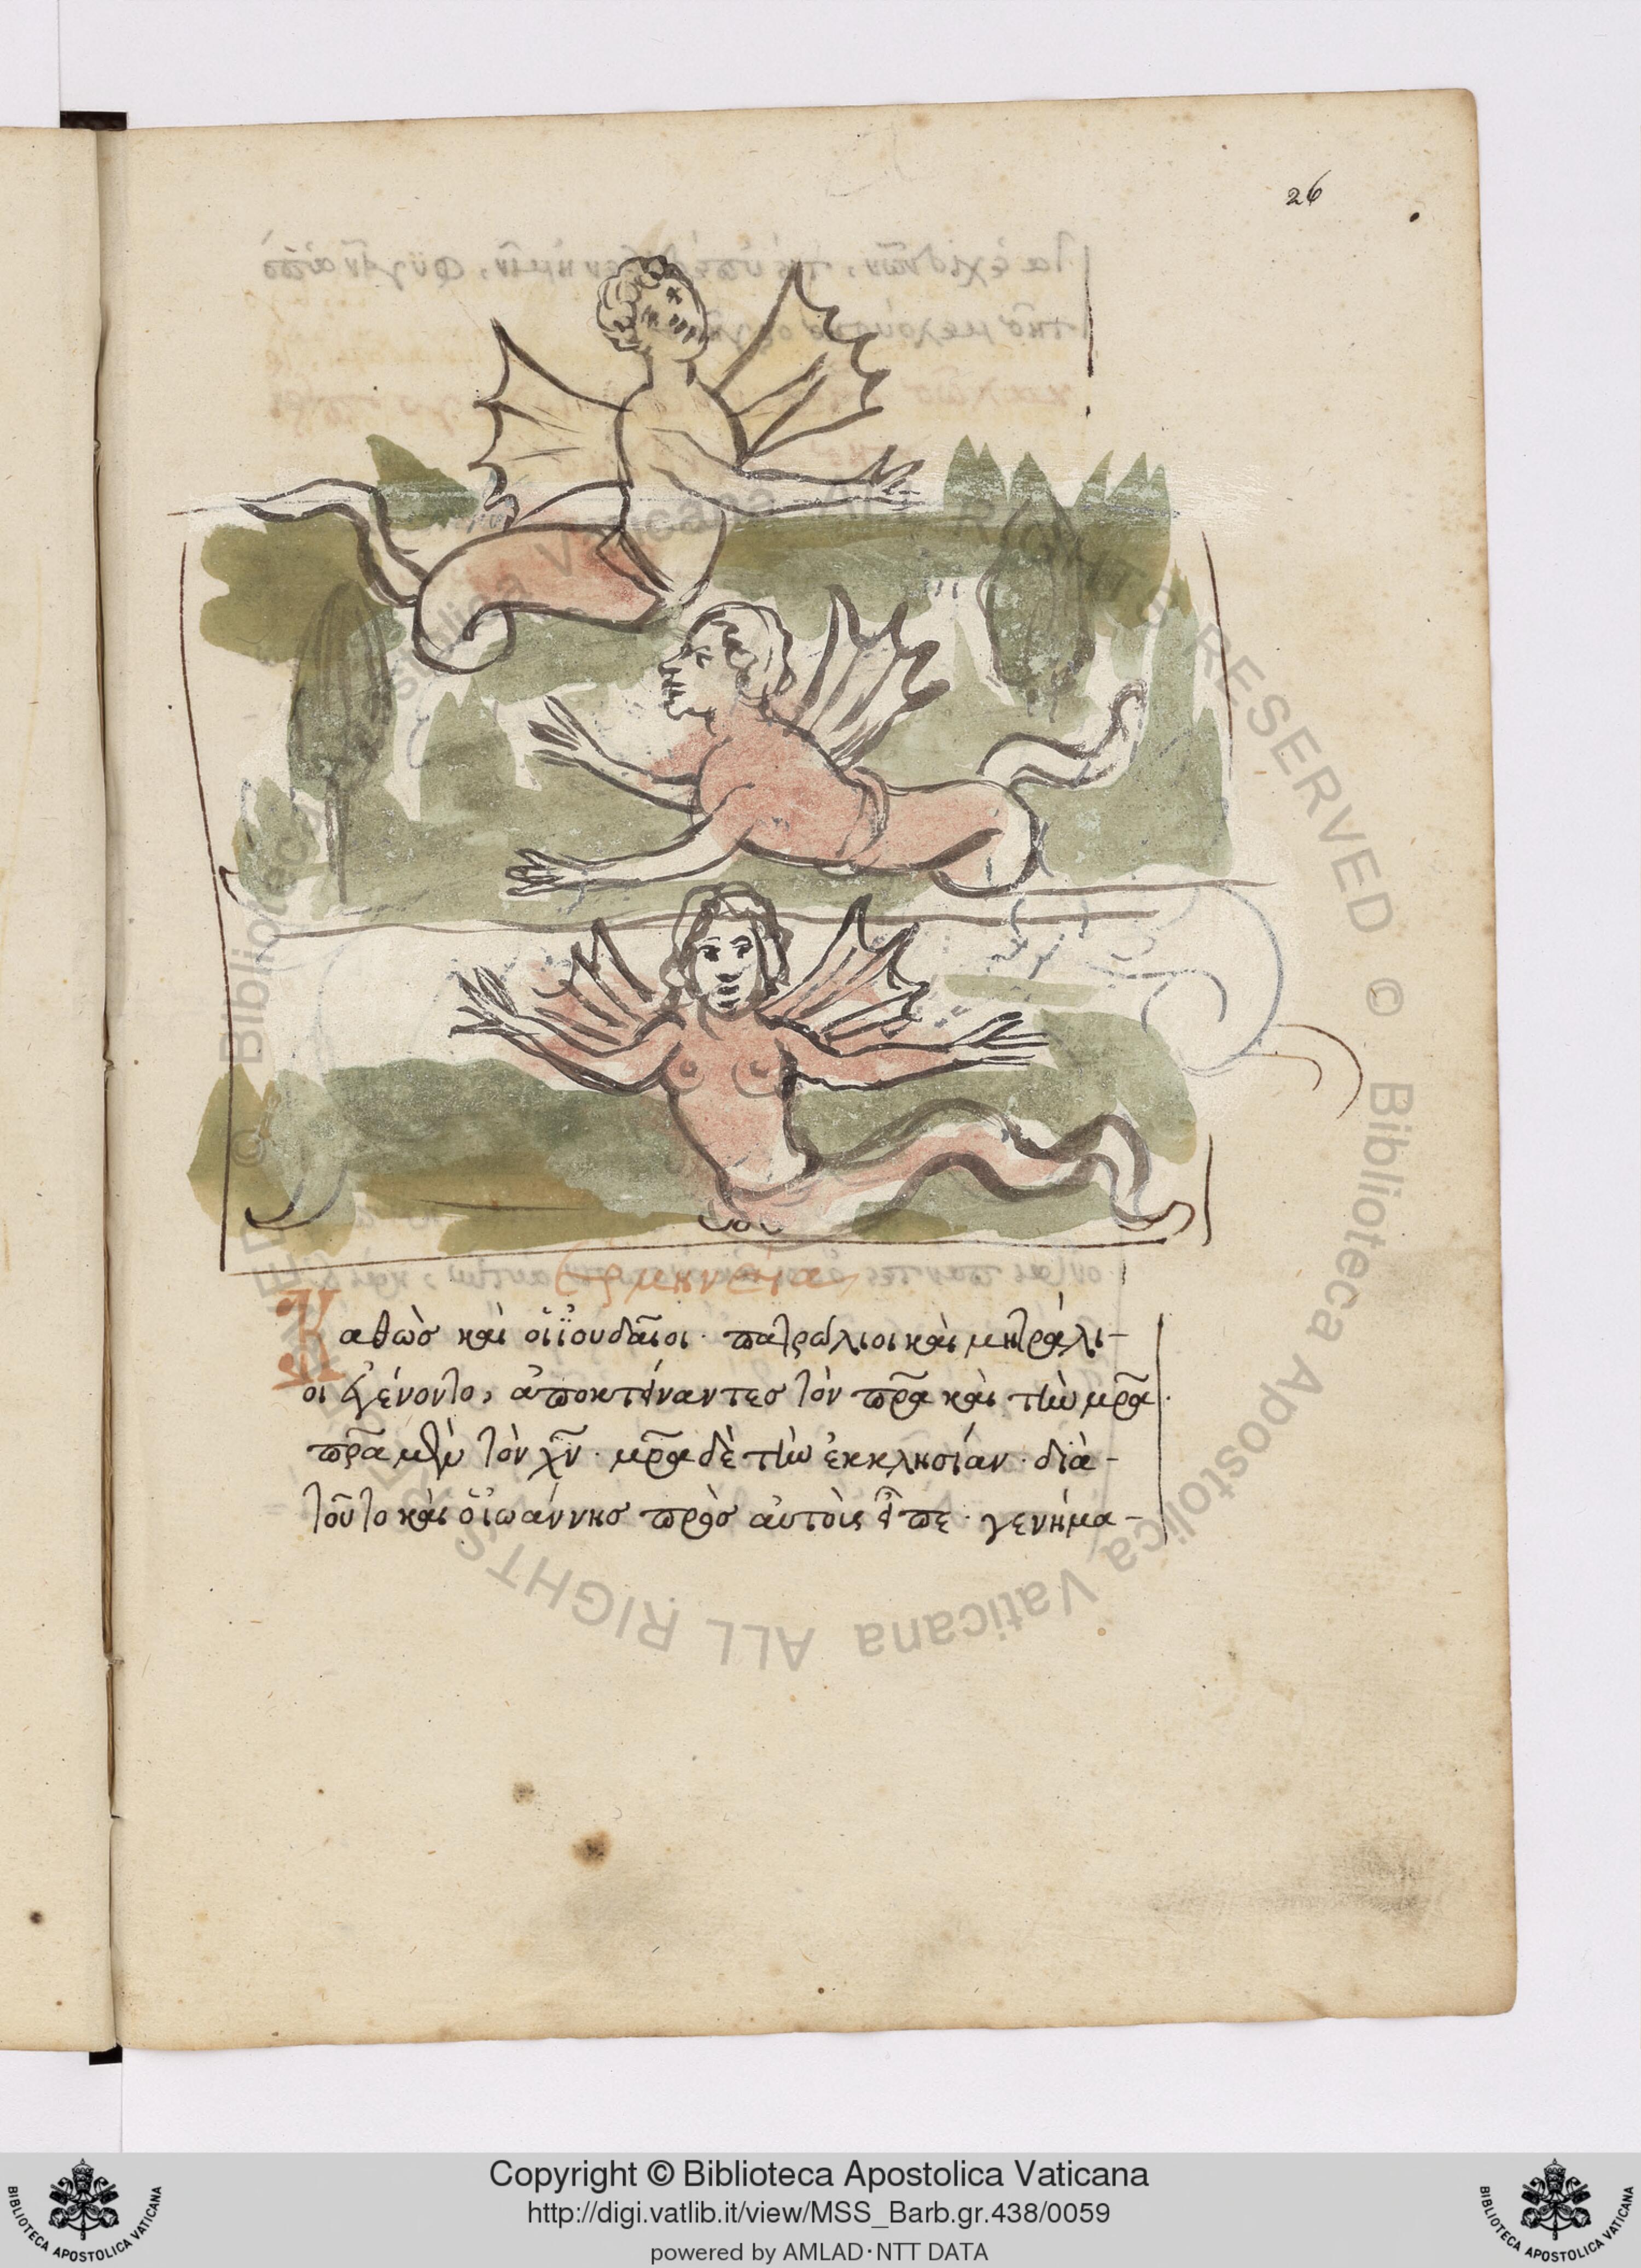 26
Ἑρμηνεία
Καθὼσ καὶ οἱ ἰουδαῖοι· πατρώλιοι καὶ μητράλι-
οι ἐγένοντο, ἀποκτείναντεσ τὸν πρ̅α καὶ τὴν μρ̅α·
πρ̅α μὲν τὸν χ̅ν· μρ̅α δὲ τὴν ἐκκλησίαν· διὰ-
τοῦτο καὶ ὁ ἰωάννησ πρὸσ αὐτοὺς εἶπε· γενήμα-
© Biblioteca Apostolica Vaticana ALL RIGHTS RESERVED © Biblioteca Apostolica Vaticana ALL RIGHTS RESERVED
Copyright © Biblioteca Apostolica Vaticana
http://digi.vatlib.it/view/MSS_Barb.gr.438/0059
powered by AMLAD·NTT DATA
BIBLIOTECA APOSTOLICA VATICANA
BIBLIOTECA APOSTOLICA VATICANA